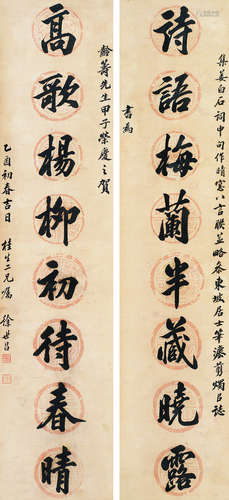 集姜白石詞中句作晴窗八言聯並略參東坡居士筆濃剪燭與誌
詩語梅蘭半藏曉露
書為
齡籌先生甲子榮慶之賀
高歌楊柳初待春晴
乙酉初春吉日
桂生二兄囑
徐世昌